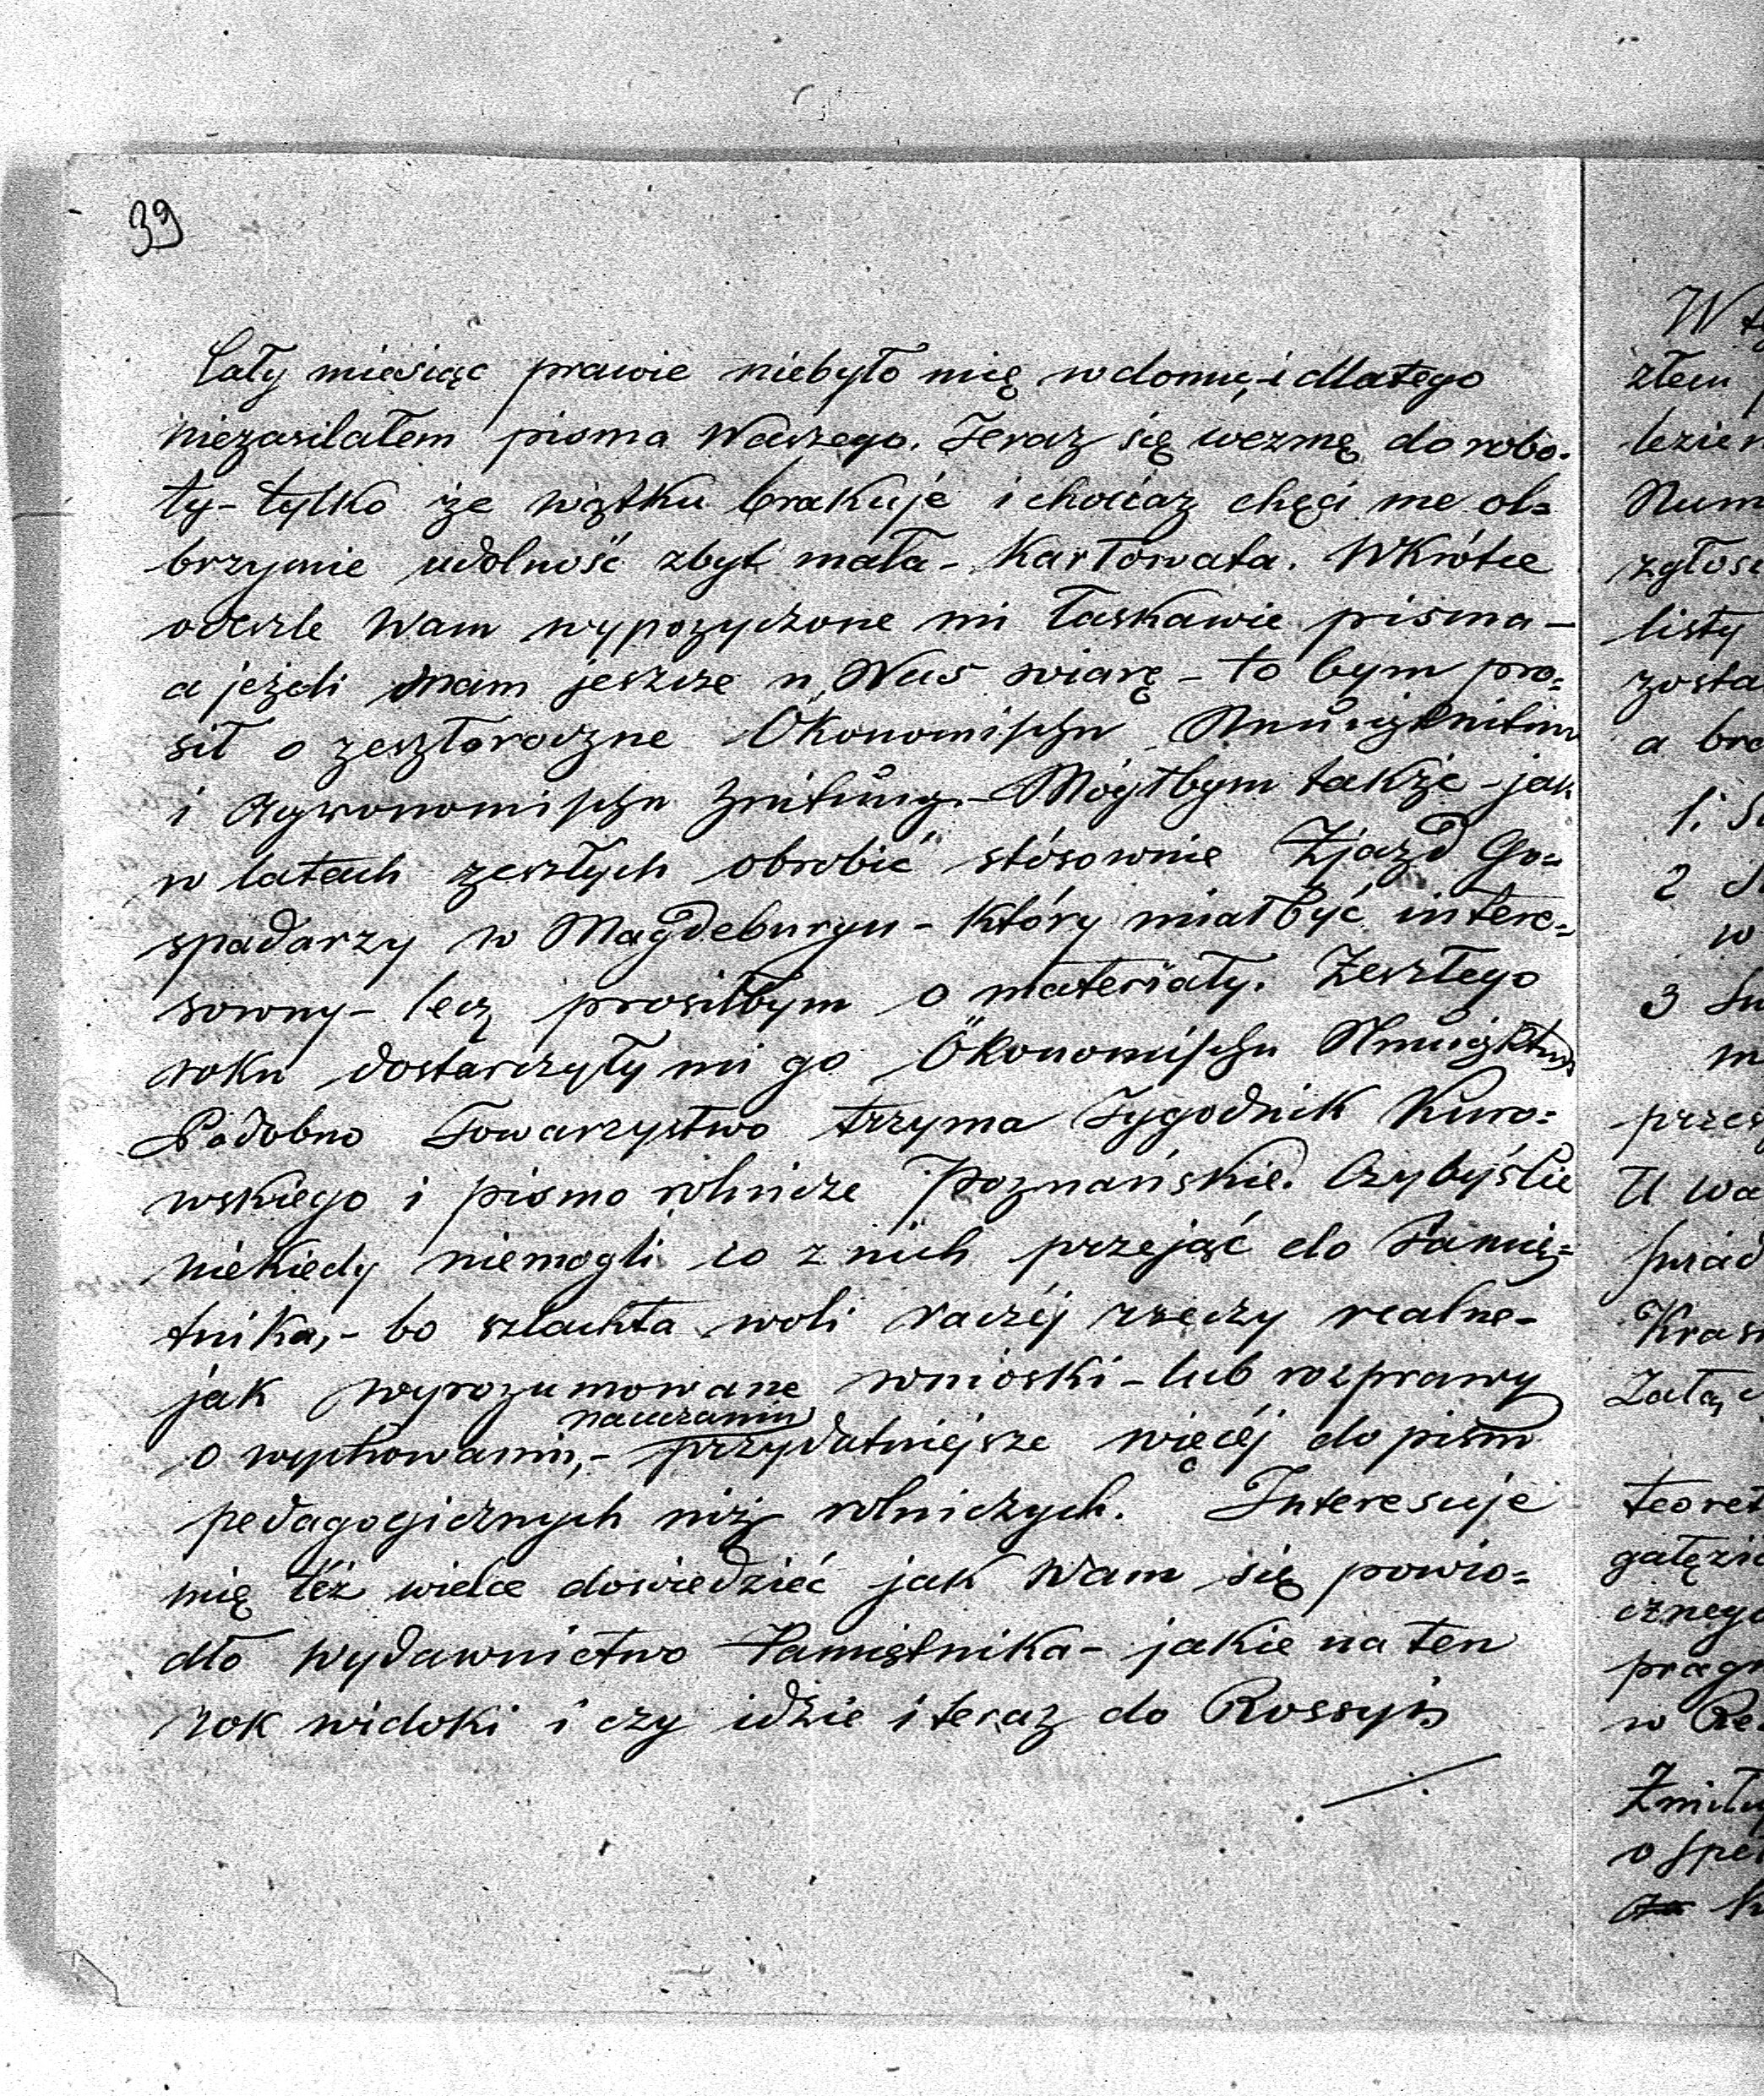 39
Cały miesiąc prawie niebyło mię w domu, i dlatego
niezasilałem pisma Waszego. Teraz się wezmę do robo-
ty - tylko że wątku brakuje i chociaz chęci me ol=
brzymie udolność zbyt mała - Karłowata. Wkrótce
odeszle Wam wypozyczone mi łaskawie pisma -
a jeżeli mam jeszcze u Was wiarę - to bym pro=
sił o zeszłoroczne Ökonomische Neuigkeiten
i Agronomische Zeitung. - Mógłbym także - jak
w latach zeszłych obrobić stósownie Zjazd Go=
spadarzy w Magdeburgu - który miał być intere=
sowny - lecz prosiłbym o materiały. Zeszłego
roku dostarczyły mi go Ökonomische
Podobno Towarzystwo trzyma Tygodnik Kuro=
wskiego i pismo rólnicze Poznańskie. Czybyście
niekiedy niemogli co z nich przejąć do Pamię=
tnika, - bo szlachta woli raczéj rzeczy realne -
jak wyrozumowane wnioski - lub rozprawy
nauczaniu
o wychowaniu, - przydatniejsze więcéj do pism
pedagogicznych niż rolniczych. Interesuje
mię téż wielce dowiedzieć jak Wam się powio=
dło wydawnictwo Pamiętnika - jakie na ten
rok widoki i czy idzie i teraz do Rossyi
W
złem
Num
listy
zosta
a
1.
2
w
3
m
U wa
Kras
teoret
gałęzi
cznego
w Re